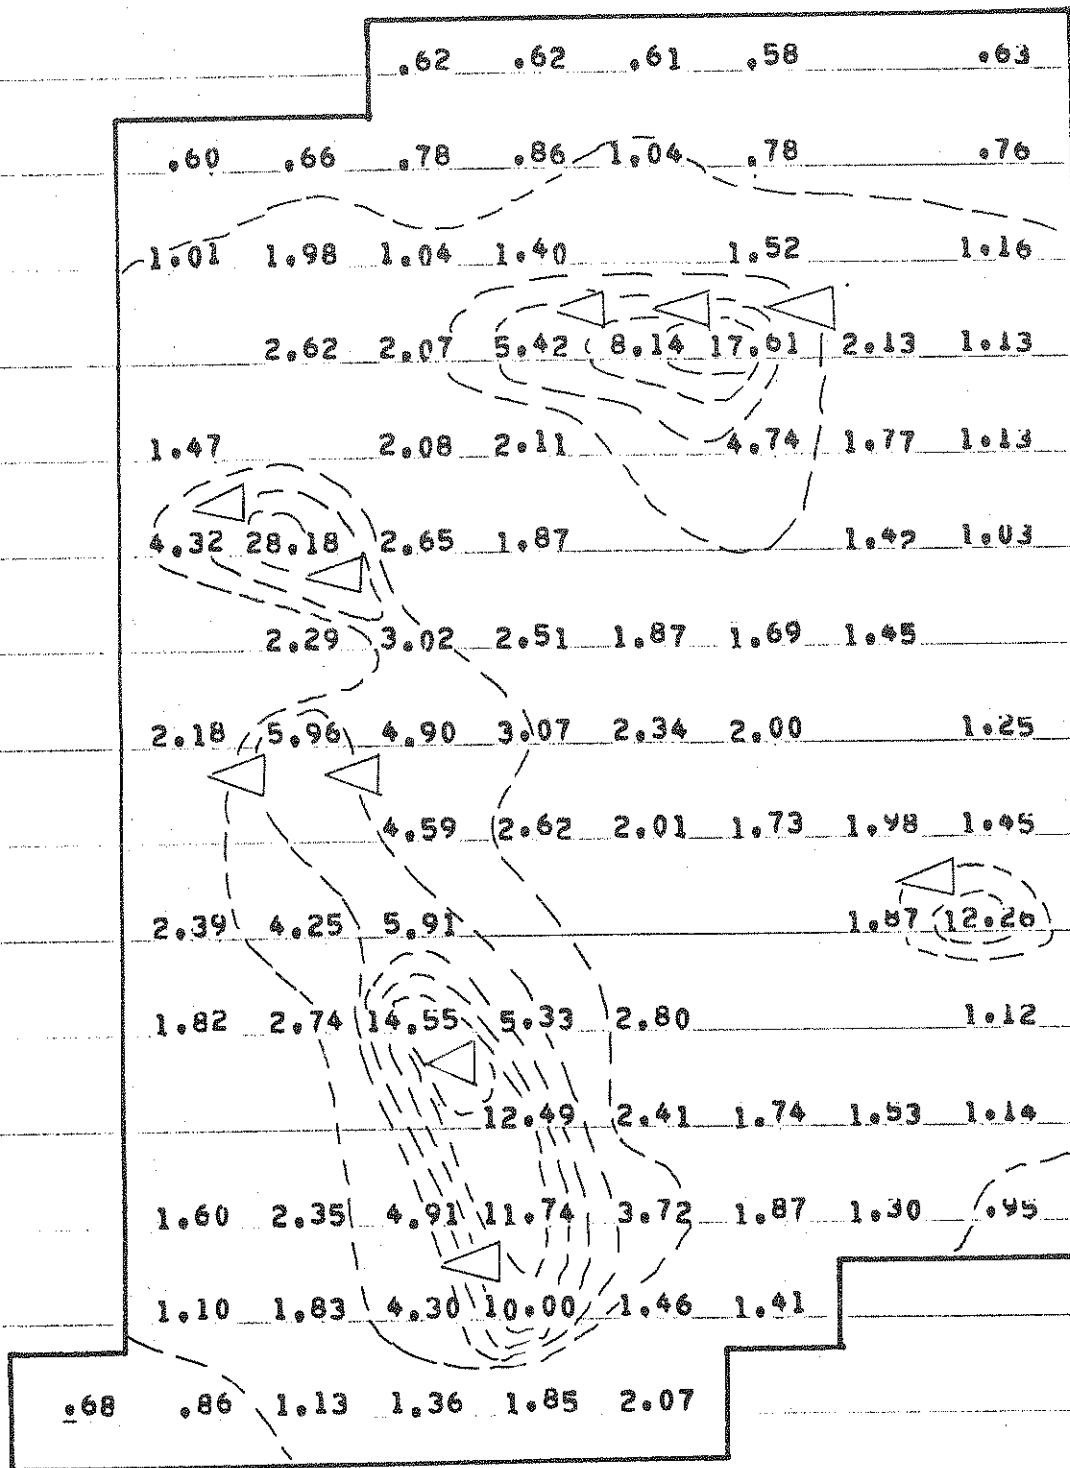 .62 .62 .61 .58 .63
.60 .66 .78 .86 1.04 .78 .76
1.01 1.98 1.04 1.40 1.52 1.16
2.62 2.07 5.42 8.14 17.61 2.13 1.13
1.47 2.08 2.11 4.74 1.77 1.13
4.32 28.18 2.65 1.87 1.42 1.03
2.29 3.02 2.51 1.87 1.69 1.45
2.18 5.96 4.90 3.07 2.34 2.00 1.25
4.59 2.62 2.01 1.73 1.98 1.45
2.39 4.25 5.91 1.87 12.26
1.82 2.74 14.55 5.33 2.80 1.12
12.49 2.41 1.74 1.53 1.14
1.60 2.35 4.91 11.74 3.72 1.87 1.30 .95
1.10 1.83 4.30 10.00 1.46 1.41
.68 .86 1.13 1.36 1.85 2.07